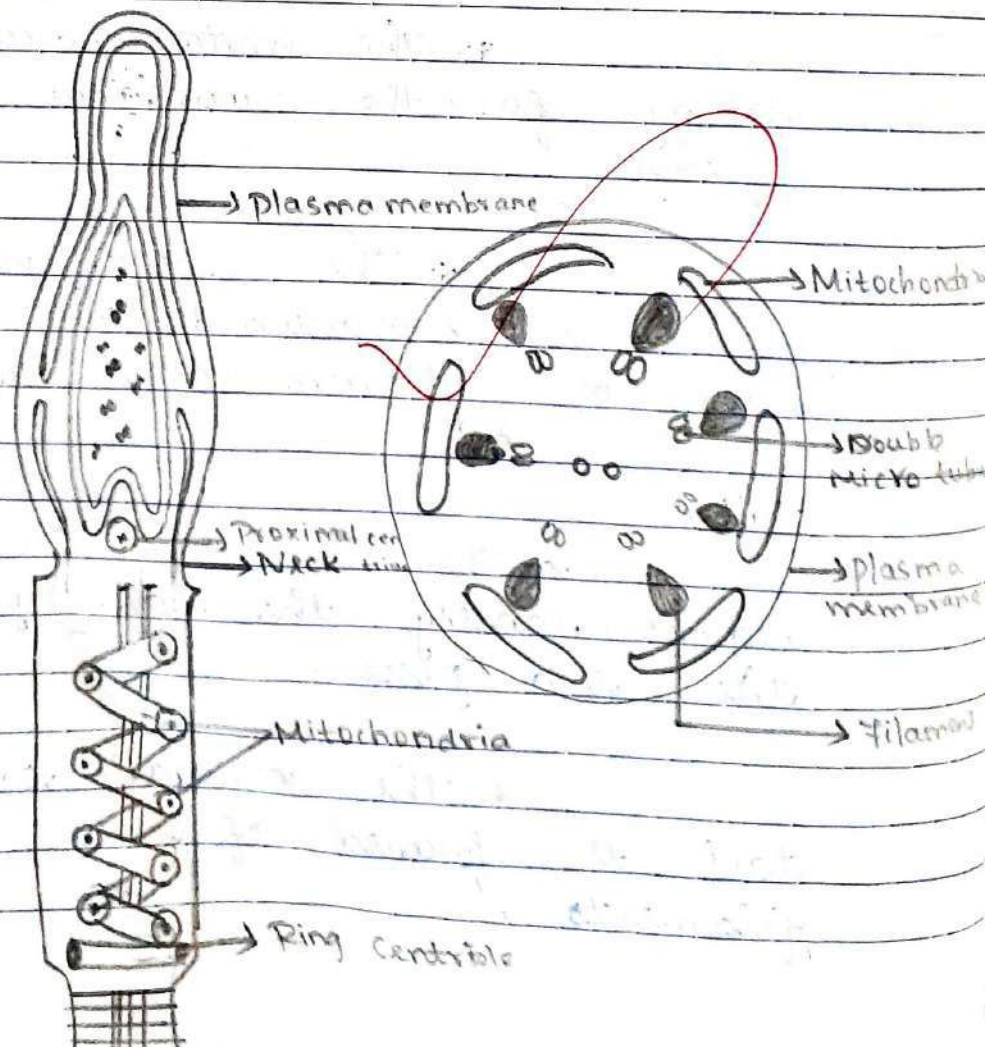 Plasma membrane
Mitochondr
Doubb
Micro tub
Proximal cen
Neck
Plasma
membrane
Mitochondria
Filament
Ring centriole